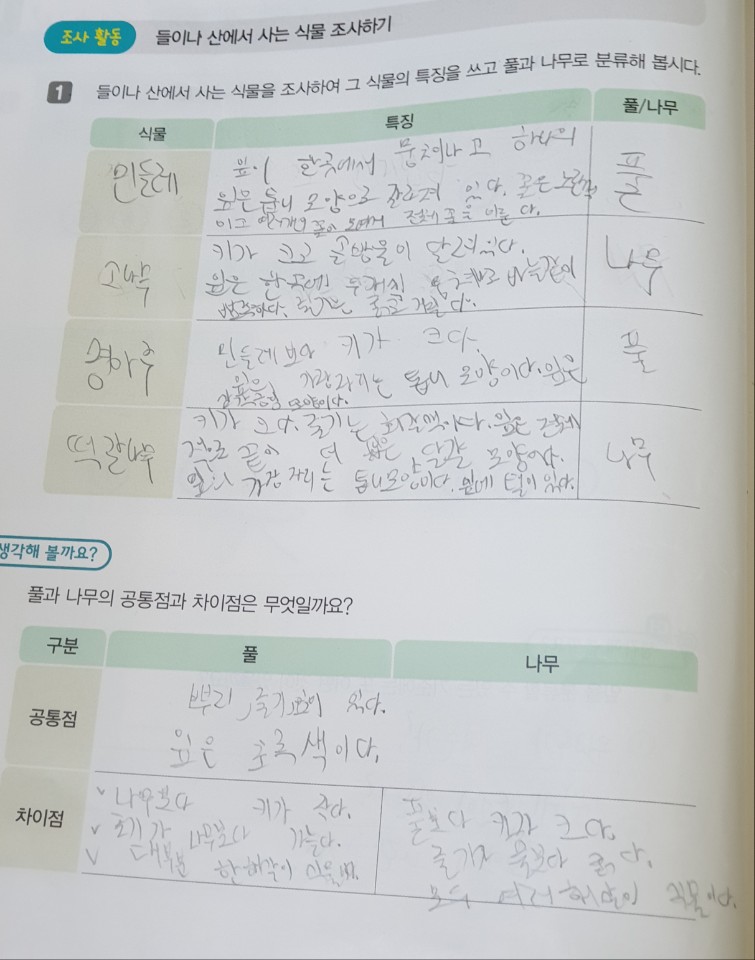 조사 활동 들이나 산에서 사는 식물 조사하기
1 들이나 산에서 사는 식물을 조사하여 그 식물의 특징을 쓰고 풀과 나무로 분류해 봅시다.
식물 특징 풀/나무
민들레
잎이 한곳에서 뭉쳐나고 하나의
잎은 톱니 모양으로 갈라져 있다. 꽃은 노란색
이고 여러개의 꽃이 모여서 전체 꽃을 이룬다.
풀
소나무
키가 크고 솔방울이 달려있다.
잎은 한곳에 두개씩 뭉쳐나고 바늘같이
나무
명아주
민들레보다 키가 크다.
잎은 가장자리는 톱니 모양이다. 잎은
모양이다.
풀
떡갈나무
키가 크다. 줄기는 회갈색이다. 잎은
끝이 더 넓은 달걀 모양이다.
잎의 가장자리는 톱니모양이다. 잎에 털이 있다.
나무
생각해 볼까요?
풀과 나무의 공통점과 차이점은 무엇일까요?
구분 풀 나무
공통점
뿌리, 줄기, 잎이 있다.
잎은 초록색이다.
차이점
나무보다 키가 작다.
줄기가 나무보다 가늘다.
대부분 한해살이 식물이다.
풀보다 키가 크다.
줄기가 풀보다 굵다.
모두 여러해살이 식물이다.